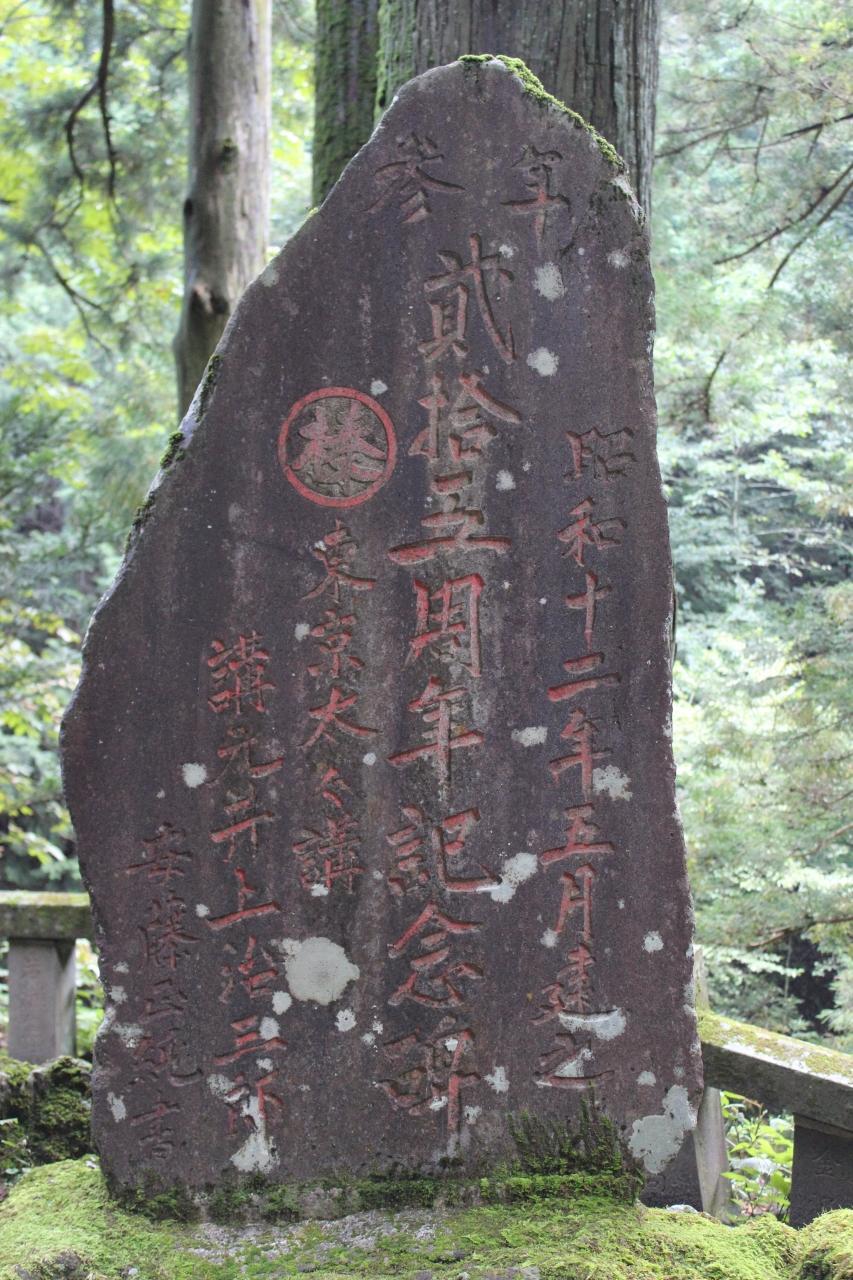 年參
昭和十二年五月建之
貳拾五周年記念碑
榛
東京太々講
講元井上治三郎
安藤正純書